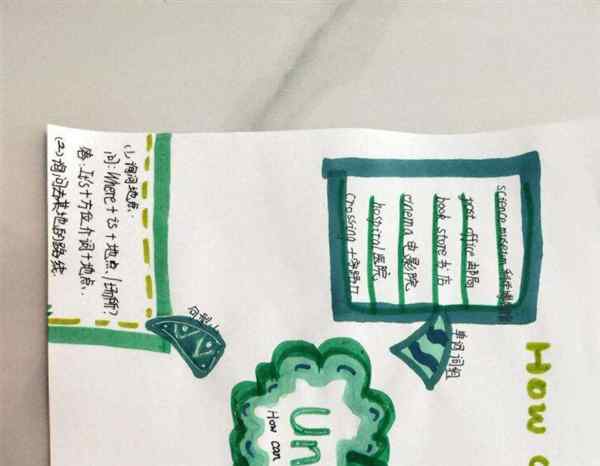 How
science museum 科学博物馆
post office 邮局
book store 书店
cinema 电影院
hospital 医院
crossing 十字路口
单词词组
Un
How can
句型
(1)询问地点:
问: Where+is+地点/场所?
答: It's+方位介词+地点.
(2)询问去某地的路线